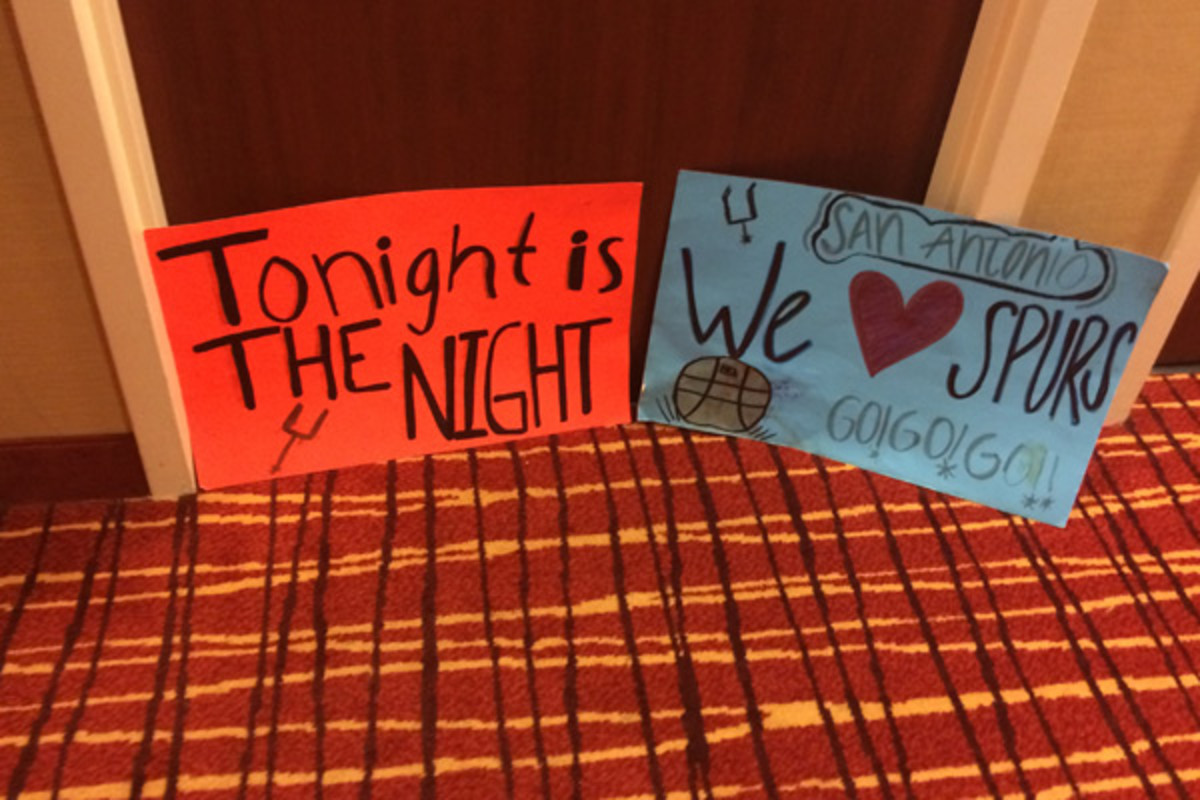 Tonight is
THE NIGHT
SAN ANTONIO
We SPURS
GO! GO! GO!!